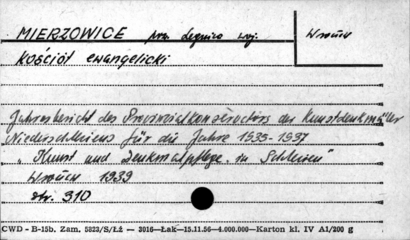 MIERZOWICE pow. Legnica woj. Wrocław
Kościół ewangelicki
Jahresbericht des Provinzialkonservators der Kunstdenkmäler
Niederschlesiens für die Jahre 1935-1937
„ Kunst und Denkmalpflege in Schlesien"
Wrocław 1939
str. 310
CWD - B-15b. Zam. 5823/S/Łź — 3016—Łak—15.11.56—4.000.000—Karton kl. IV A1/200 g